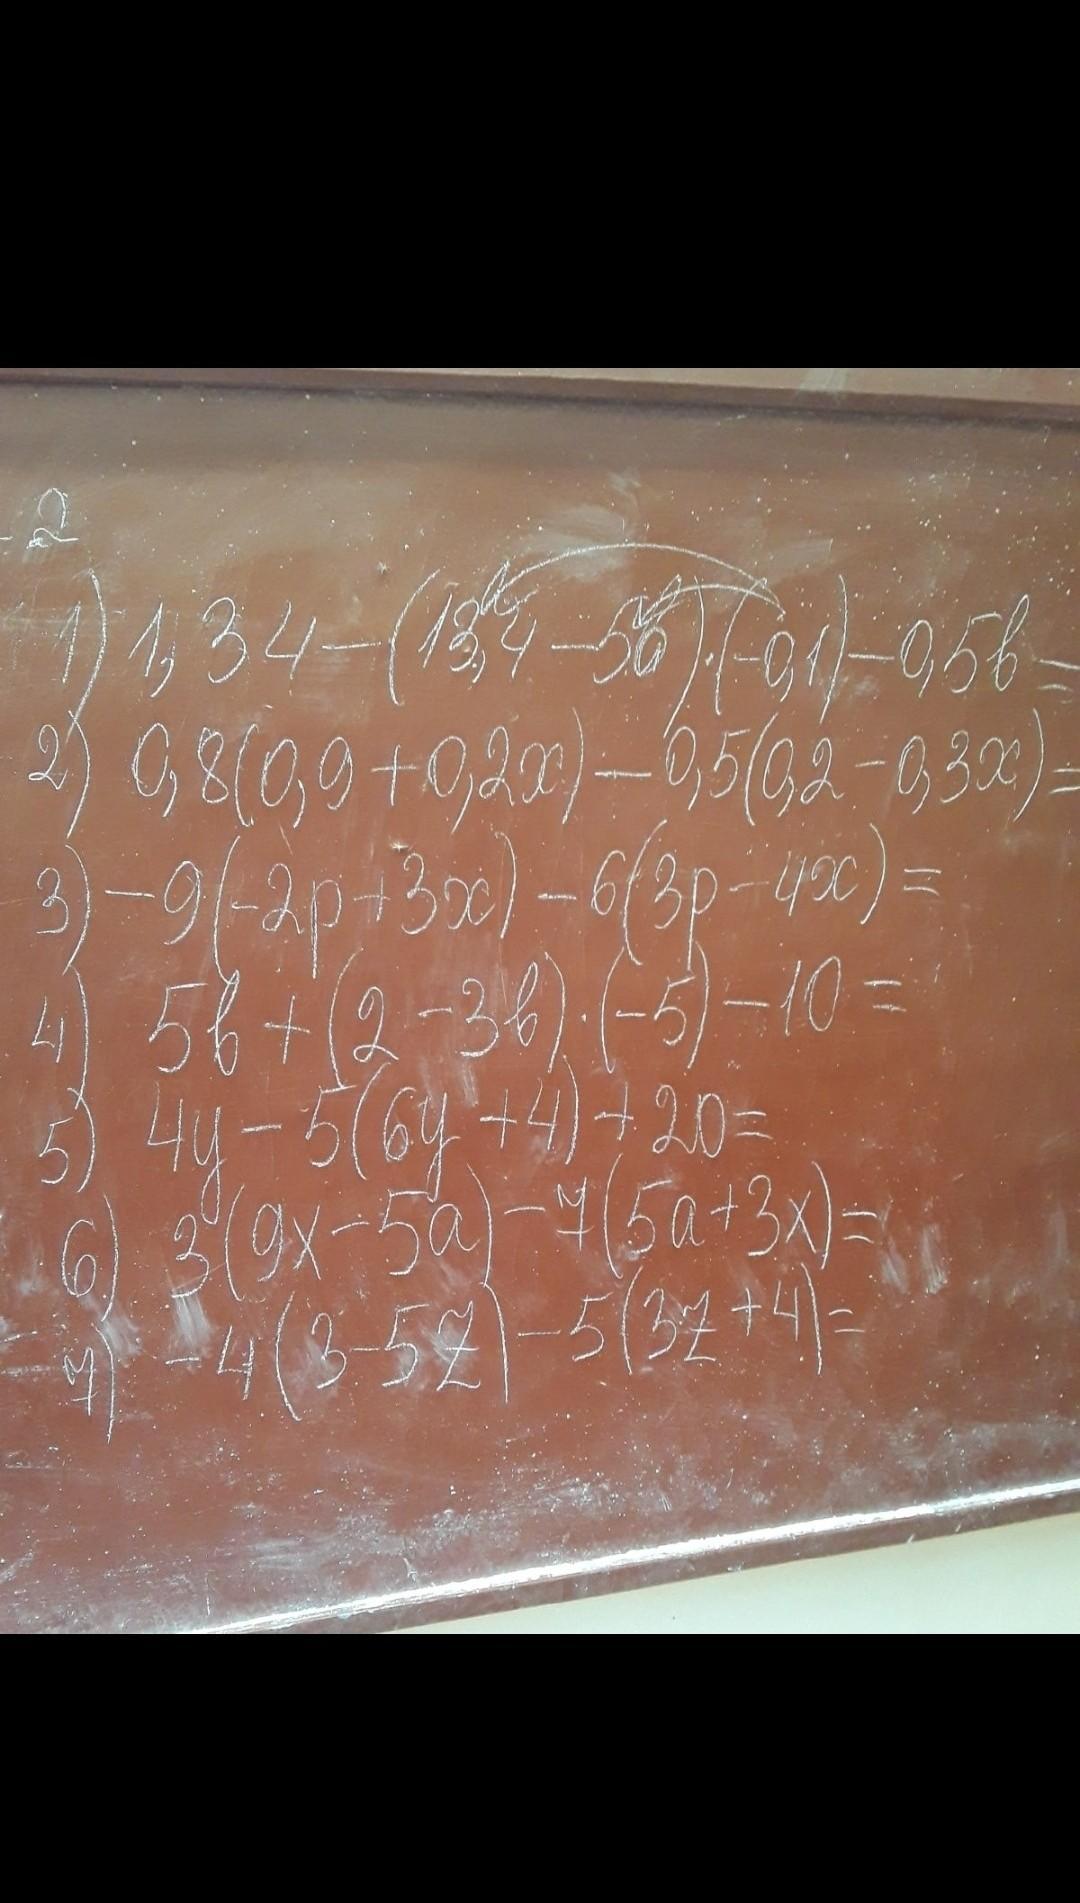 - 2
1) 1,34-(13,4-5b)·(-0,1)-0,5b=
2) 0,8(0,9+0,2x)-0,5(0,2-0,3x)=
3) -9(-2p+3x)-6(3p-4x)=
4) 5b+(2-3b)·(-5)-10=
5) 4y-5(6y+4)+20=
6) 3(9x-5a)-7(5a+3x)=
7) -4(3-5z)-5(3z+4)=